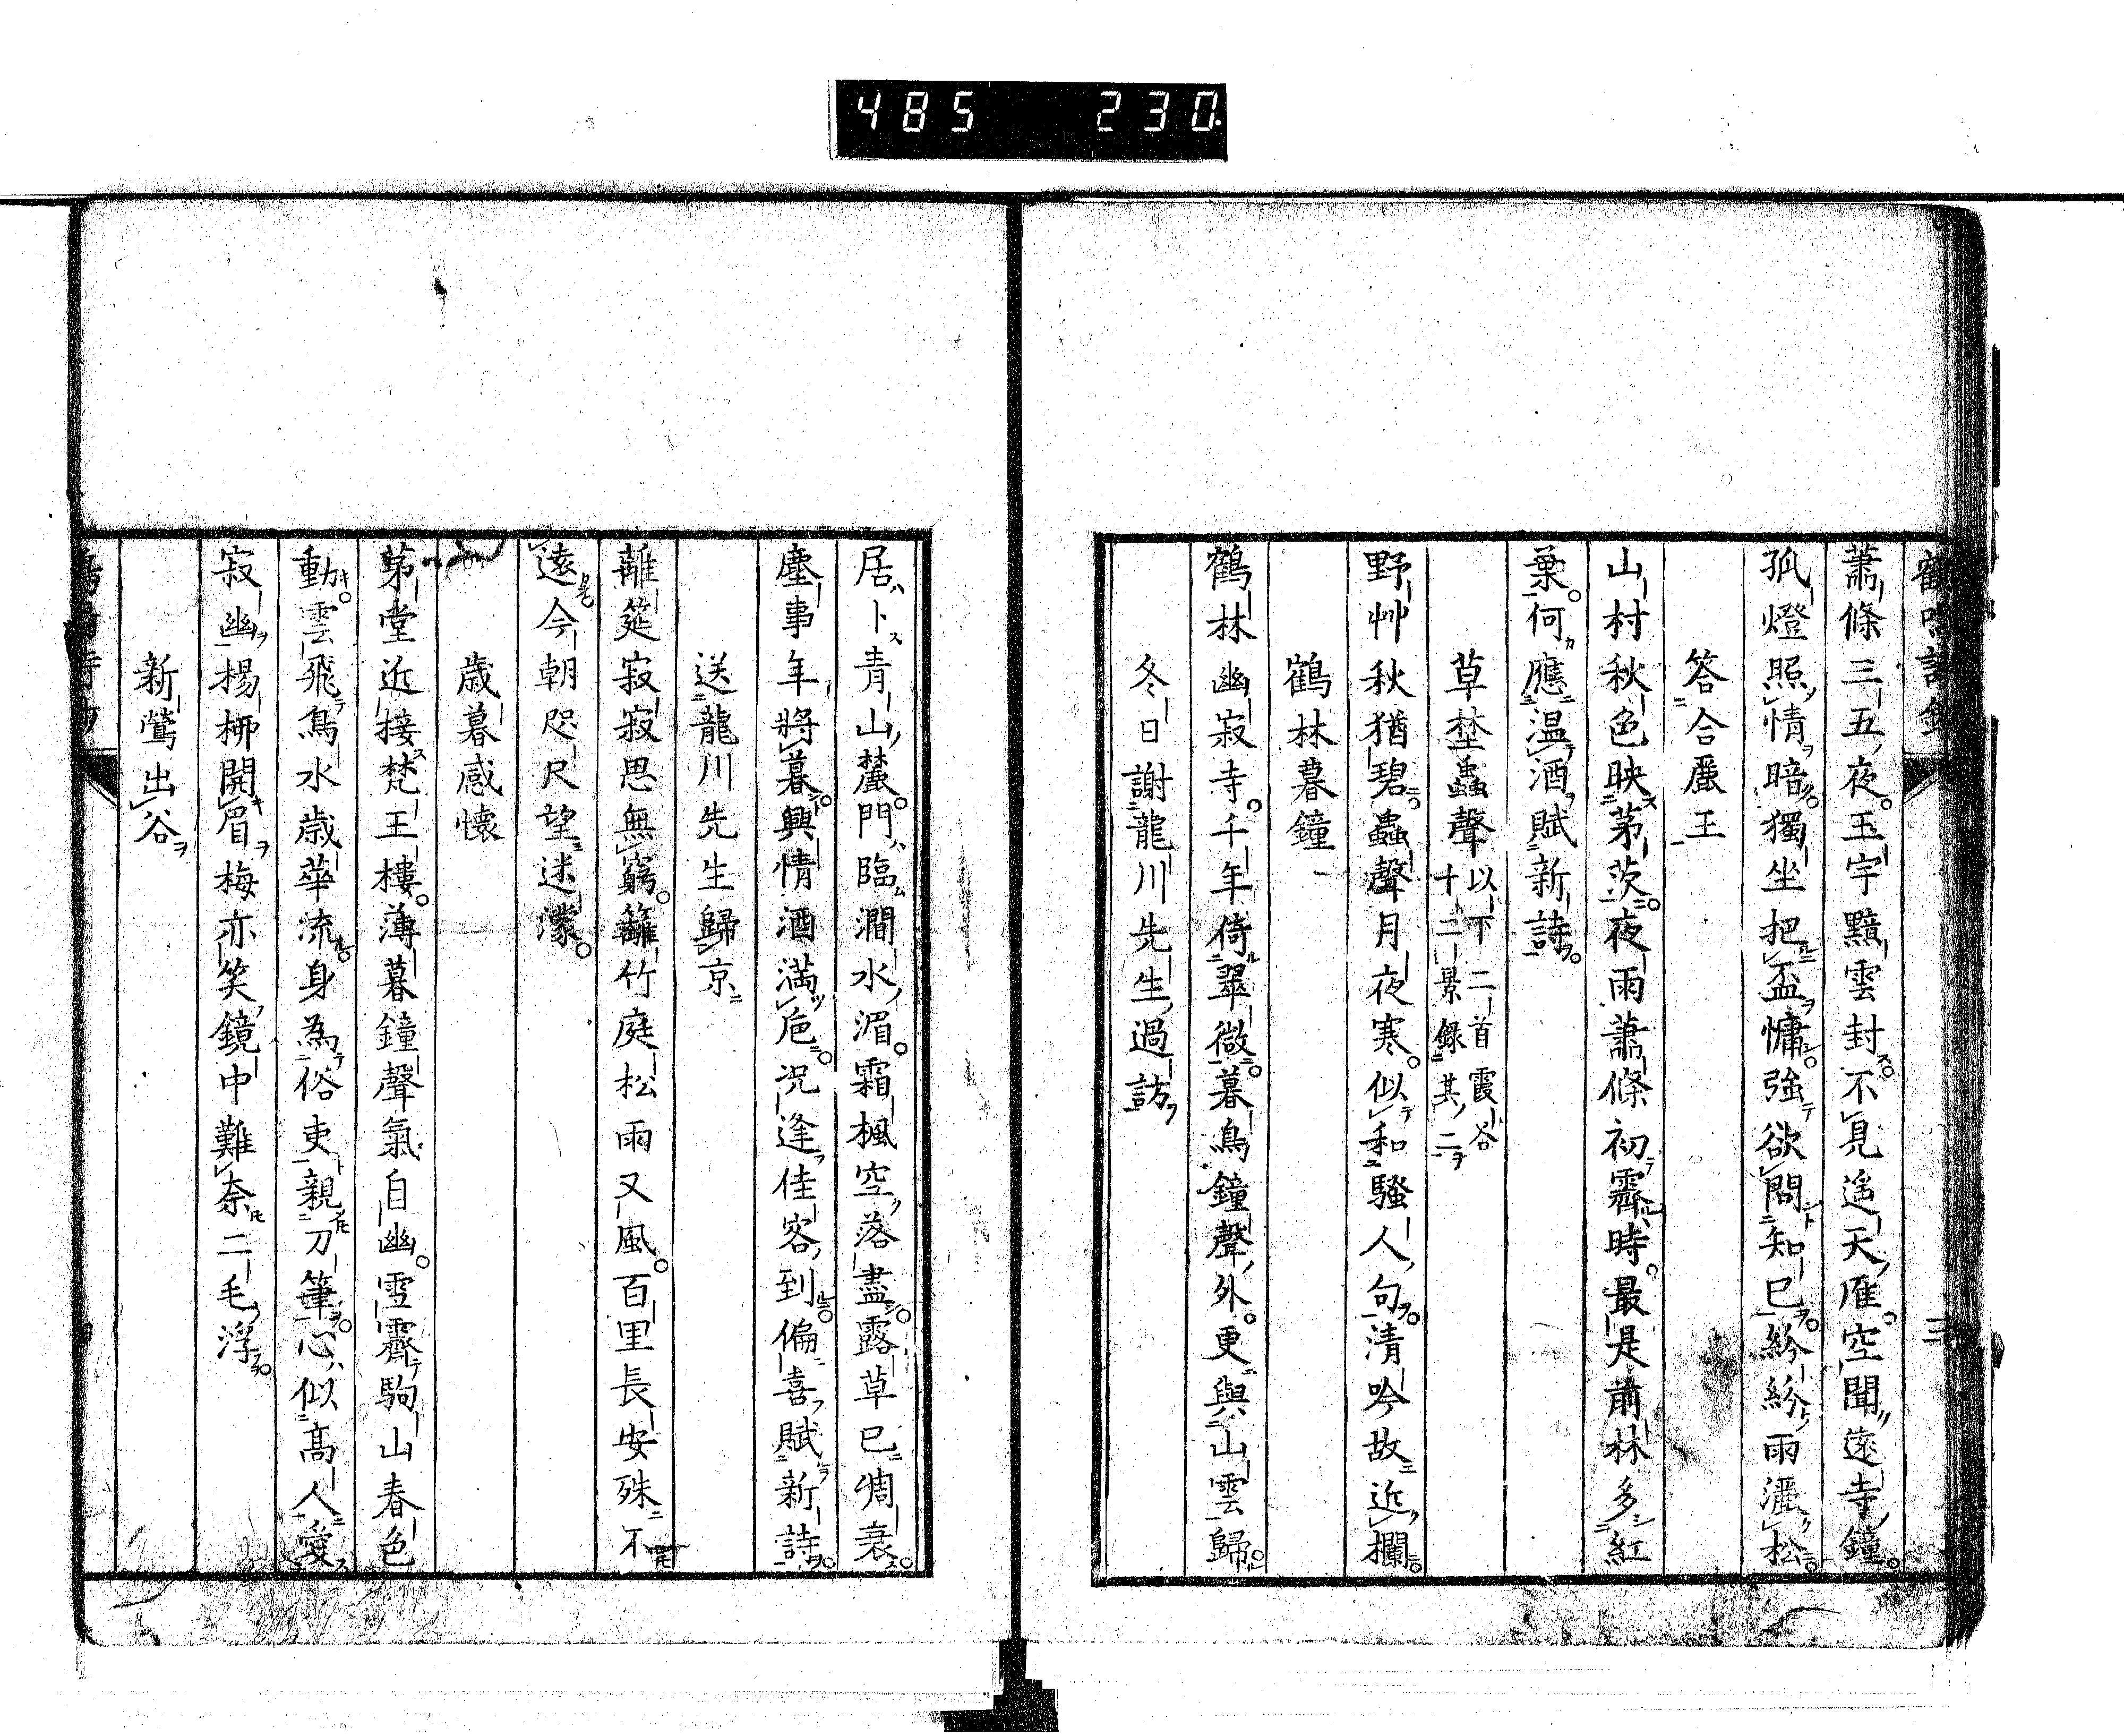 485 230
蕭條三五夜玉宇黯雲封不見遥天雁空聞遠寺鐘
孤燈照情暗獨坐把盃慵強欲問知已紛紛雨灑松
答合麗王
山村秋色映茅茨夜雨蕭條初霽時最是前林多紅
葉何應温酒賦新詩
草埜蟲聲以下二首霞谷十二景錄其二
野艸秋猶碧蟲聲月夜寒似和騷人句清吟故近欄
鶴林暮鐘
鶴林幽寂寺千年倚翠微暮鳥鐘聲外更與山雲歸
冬日謝龍川先生過訪
居卜青山麓門臨澗水湄霜楓空落盡露草已凋衰
塵事年將暮興情酒満巵況逢佳客到偏喜賦新詩
送龍川先生歸京
離筵寂寂思無窮籬竹庭松雨又風百里長安殊不
遠今朝咫尺望迷濛
歳暮感懷
茅堂近接梵王樓薄暮鐘聲氣自幽雪霽駒山春色
動雲飛鳥水歳華流身為俗吏親刀筆心似髙人愛
寂幽楊栁開眉梅亦笑鏡中難奈二毛浮
新鶯出谷